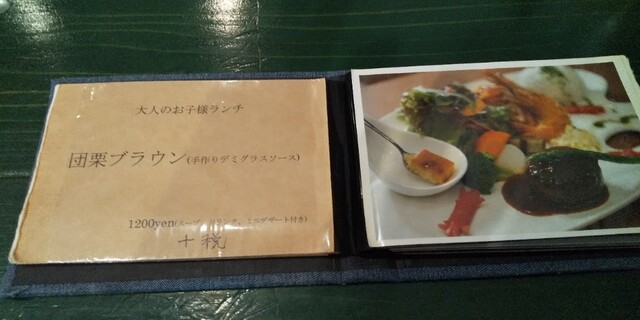 大人のお子様ランチ
団栗ブラウン(手作りデミグラスソース)
1200yen(スープ、ドリンク、ミニデザート付き)
+税